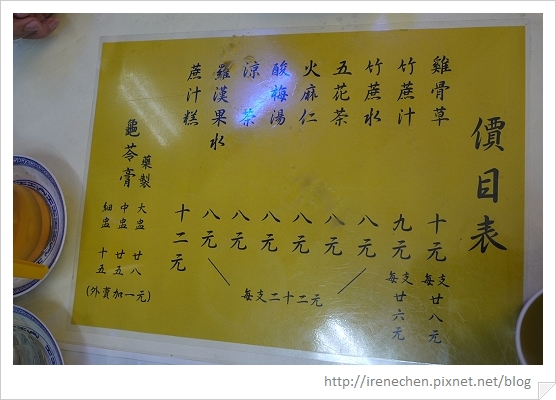 價目表
雞骨草 十元 每支廿八元
竹蔗汁 九元 每支廿六元
竹蔗水 八元
五花茶 八元
火麻仁 八元
酸梅湯 八元
涼茶 八元
羅漢果水 八元
蔗汁糕 十二元
每支二十二元
藥製
龜苓膏
大盅 廿八
中盅 廿五
細盅 十五
(外賣加一元)
http://irenechen.pixnet.net/blog